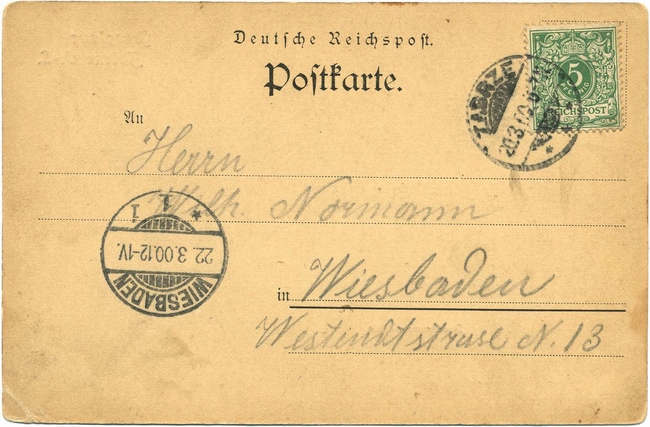 Deutsche Reichspost.
Postkarte.
5
REICHSPOST
ZABRZE
20.3.00
An
Herrn
Wilh. Normann
1 1
22.3.00.12-1V.
WIESBADEN
in Wiesbaden
N. 13